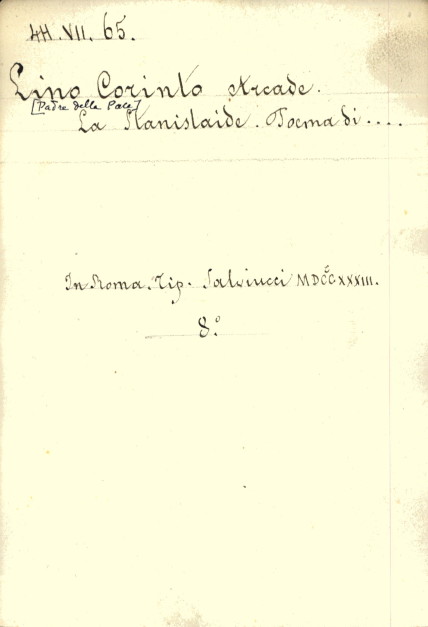 44.VII.65.
Lino Corinto Arcade.
[Padre della Pace]
La Stanislaide. Poema di....
In Roma. Tip. Salviucci MDCCCXXXIII.
8.º